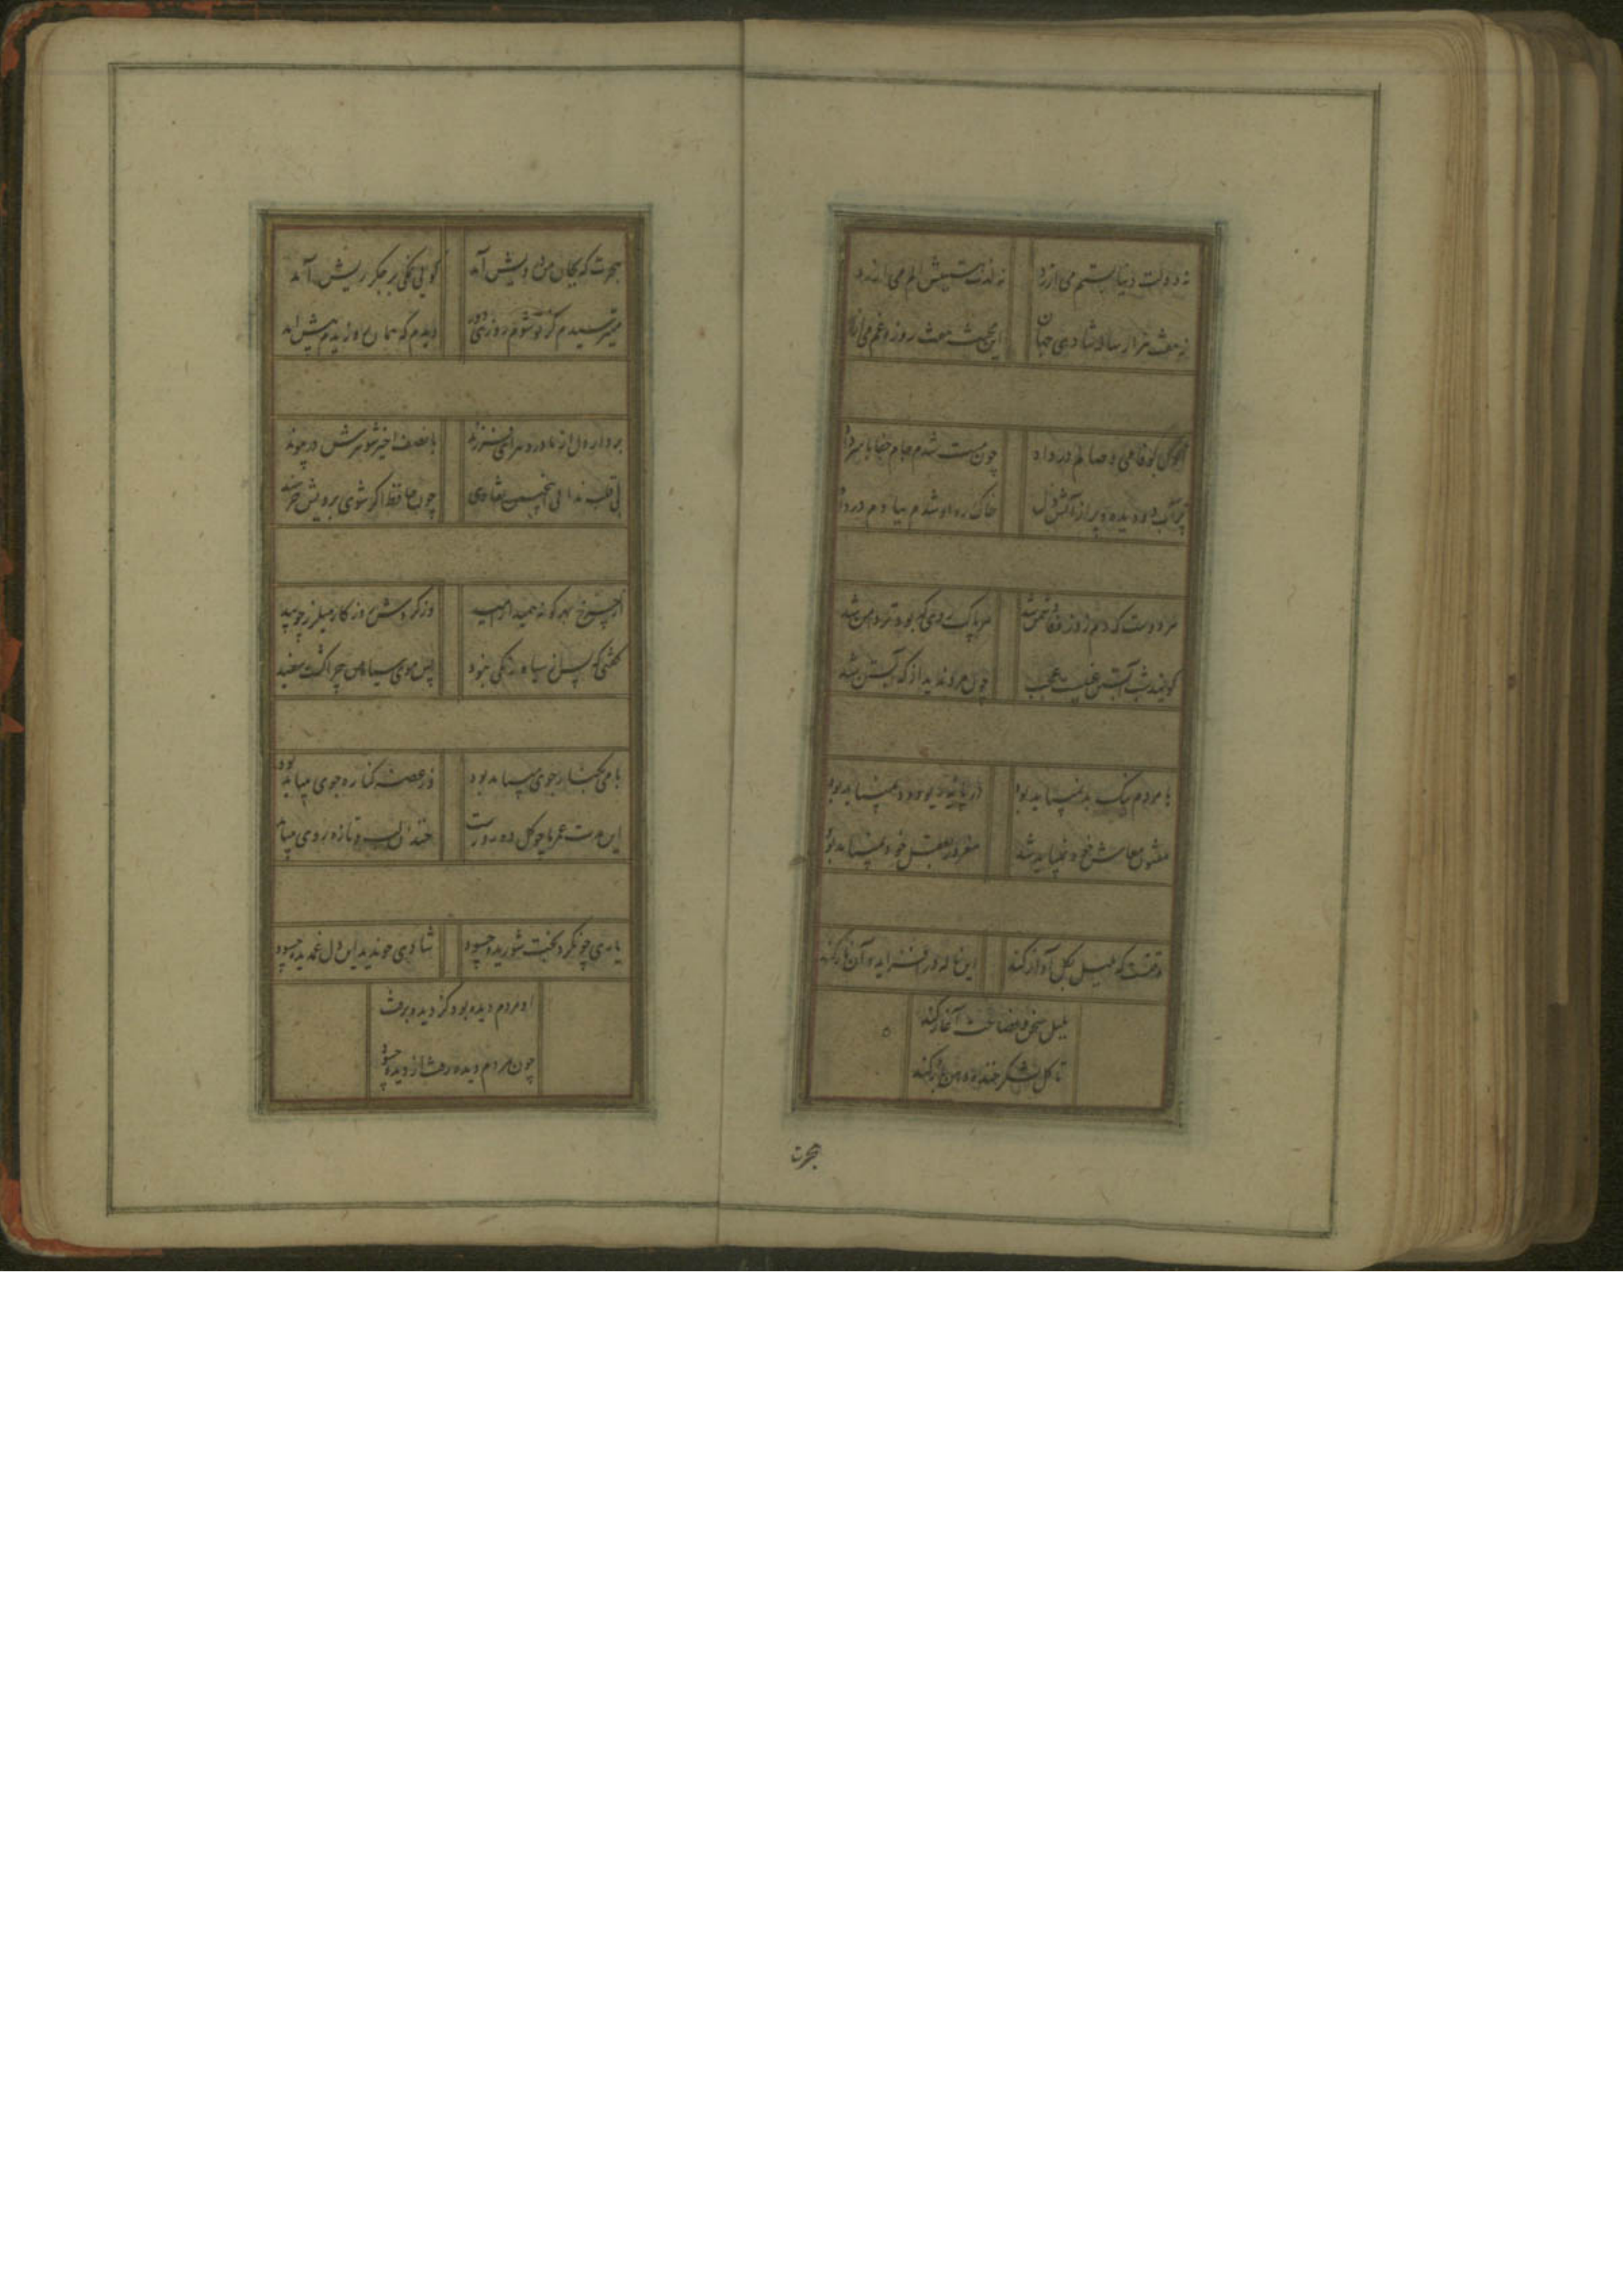 نه دولت دنیا بستم می ارزد نه لذت هستیش الم می ارزد
نه هفت هزار ساله شادی جهان این محنت هفت روزه غم می ارزد
اول بوفا می وصالم در داد چون مست شدم جام جفا با سرداد
پر آب دو دیده و پر از آتش دل خاک ره او شدم ببادم در داد
هر دوست که دم زد ز وفا دشمن شد هر پاک روی که بود تردامن شد
گویند شب آبستن غیبست عجب چون مرد ندید از که آبستن شد
با مردم نیک بد نمیباید بود در بادیه دیو و دد نمیباید بود
مفتون معاش خود نمیباید شد مغرور بعقل خود نمیباید بود
وقتست که بلبل بگل آواز کند این ناله در افزاید و آن ناز کند
بلبل سخن و فصاحت آغاز کند
تا گل بشکر خنده دهن باز کند
هجرت
هجرت که بجان من درویش آمد گویی نمکی بر جگر ریش آمد
میترسیدم کز تو شوم روزی دور دیدم که همان روز بدم پیش آمد
بردار دل از مادر دهر ای فرزند با نصف اخیر شوهرش در پیوند
بی قلب ندا لی انچنین بقا وی چون حافظ اگر شوی برویش خرسند
از چرخ بهر گونه همیدار امید وز گردش روزگار میلرز چو بید
گفتی که پس از سیاه رنگی نبود پس موی سیاه من چرا گشت سفید
با می بکنار جوی میباید بود وز غصه کناره جوی میباید بود
این مدت عمر ما چو گل ده روزست خندان لب و تازه روی میباید
یاری چو نکرد بخت شوریده چسود شادی چو ندید این دل غمدیده چسود
او مردم دیده بود گردید و برفت
چون مردم دیده رفت از دیده چسود